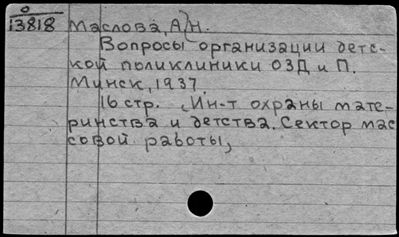 0
13818 Маслова, А.Н.
Вопросы организации детс-
кой поликлиники ОЗД и П.
Минск, 1937.
16 стр. (Ин-т охраны мате-
ринства и детства. Сектор мас
совой работы)